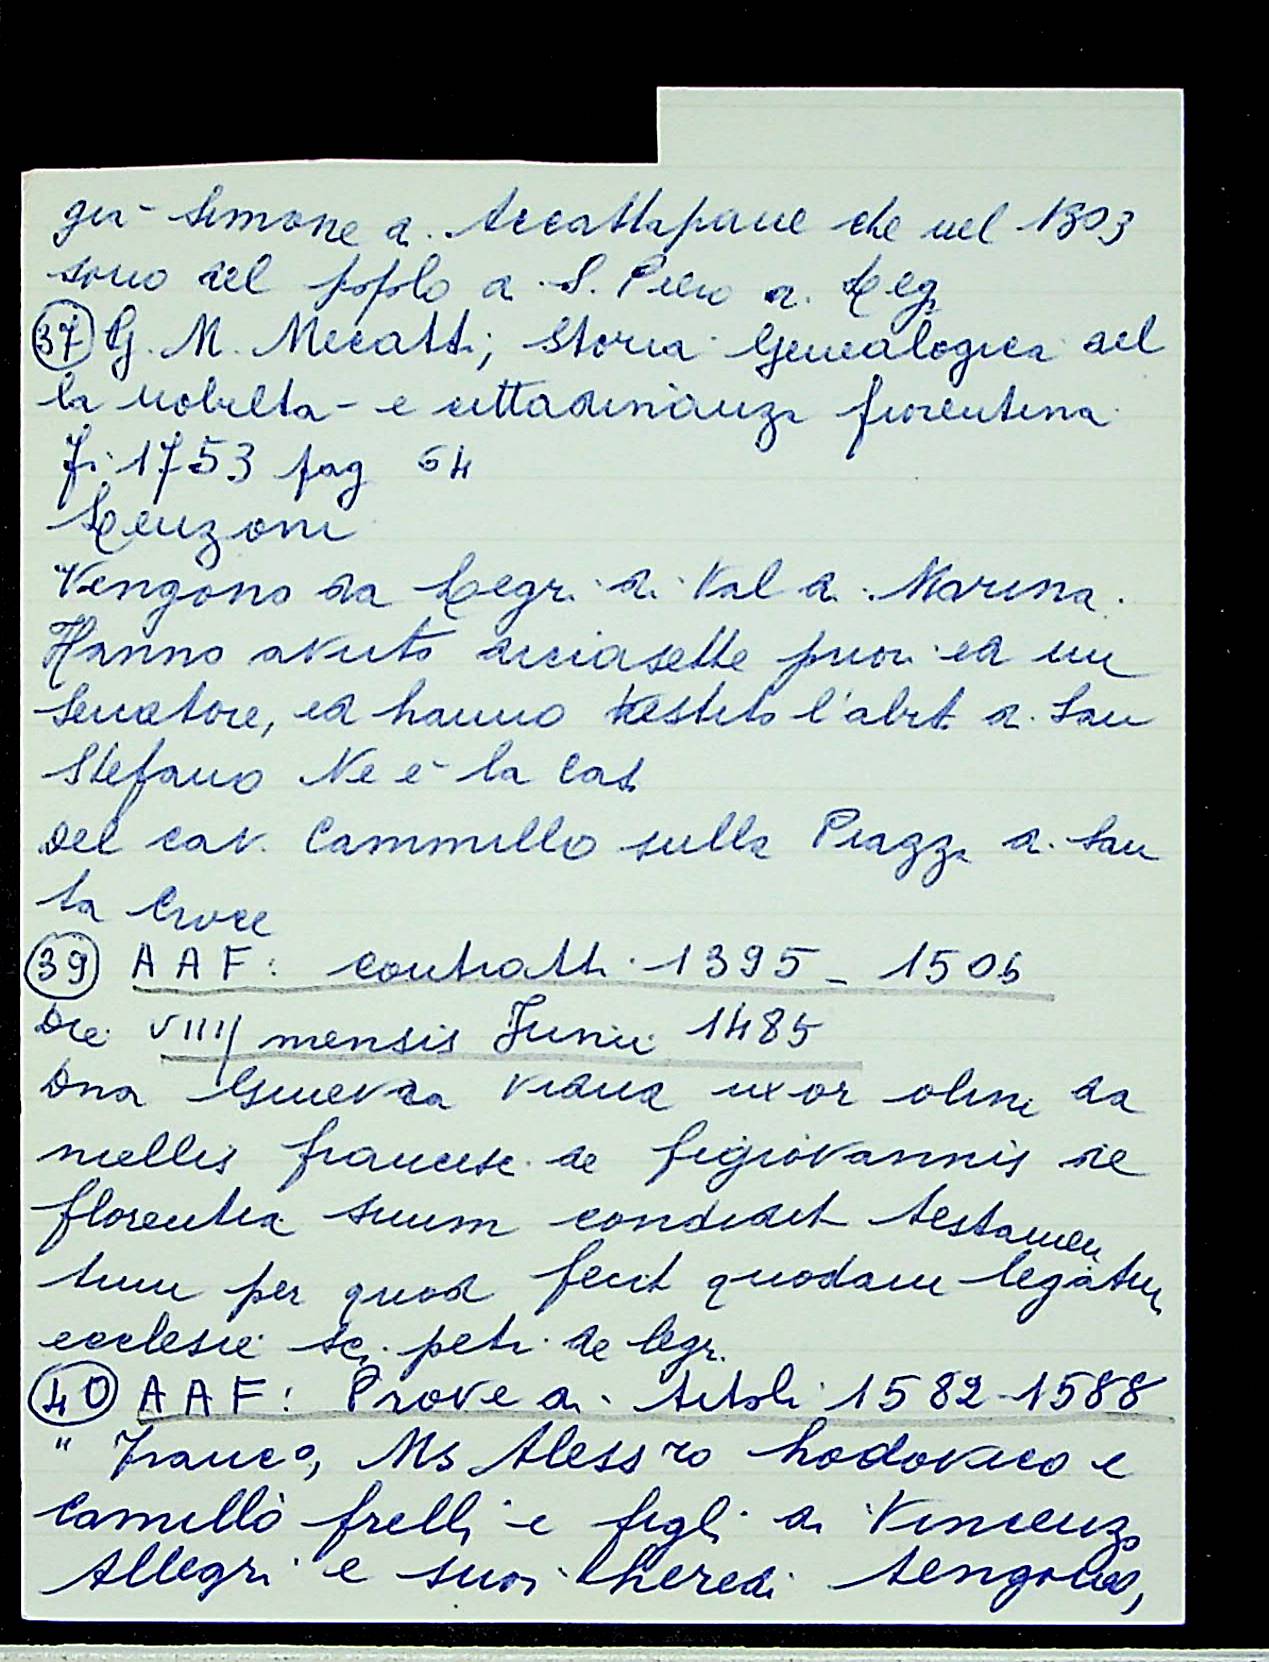 gia Simone d. Accattapane che nel 1303
sono del popolo d. S. Piero a. Legr
(37) G. M. Mecatti; Storia Genealogica del
la nobilta e cittadinanza fiorentina
Fi. 1753 pag 64
Lenzoni
Vengono da Legri di Val d. Marina.
Hanno avuto diciasette priori ed un
senatore, ed hanno vestito l'abit d. San
Stefano Ne e la Cas
Del cav. Cammillo sulla Piazza d. San
ta Croce
(39) AAF: contratti 1395 - 1505
Die VIIII mensis Junii 1485
Dna Ginevra vidua uxor olim da
niellis francisc. de figiovannis de
florentia suum condidit testamen
tum per quod fecit quodam legatu
ecclesie sc. petri de legr.
(40) AAF: Prove di titoli 1582-1588
" Franco, Ms Aless ro Lodovico e
Camillo frelli e figli di Vincenzo
Allegri e suoi heredi tengono,